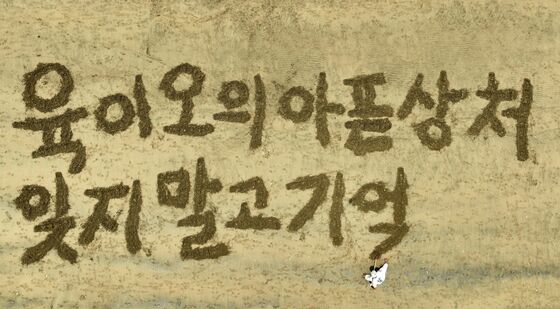 육이오의아픈상처
잊지말고기억